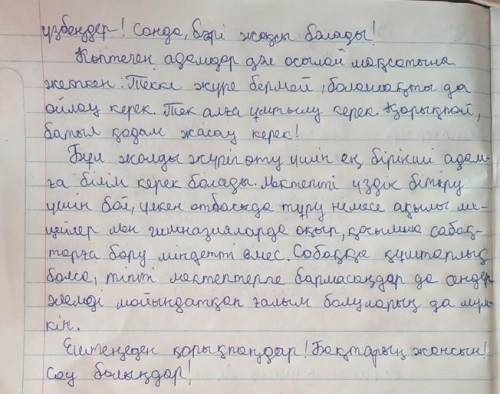 үзбеңдер! Сонда, бәрі жақсы болады!
Көптеген адамдар дәл осылай мақсатына
жеткен. Текке жүре бермей, болашақты да
ойлау керек. Тек алға ұмтылу керек. Қорықпай,
батыл қадам жасау керек!
Бұл жолды жүріп өту үшін ең бірінші адам-
ға білім керек болады. Мектепті үздік бітіру
үшін бай, үлкен отбасыда тұру немесе ақылы ли-
цейлер мен гимназияларда оқып, қосымша сабақ-
тарға бару міндетті емес. Сабаққа құштарлық
болса, тіпті мектептерге бармасаңдар да сендер
әлемді мойындатқан ғалым болуларың да мүм-
кін.
Ештеңеден қорықпаңдар! Бақтарың жансын!
Сау болыңдар!